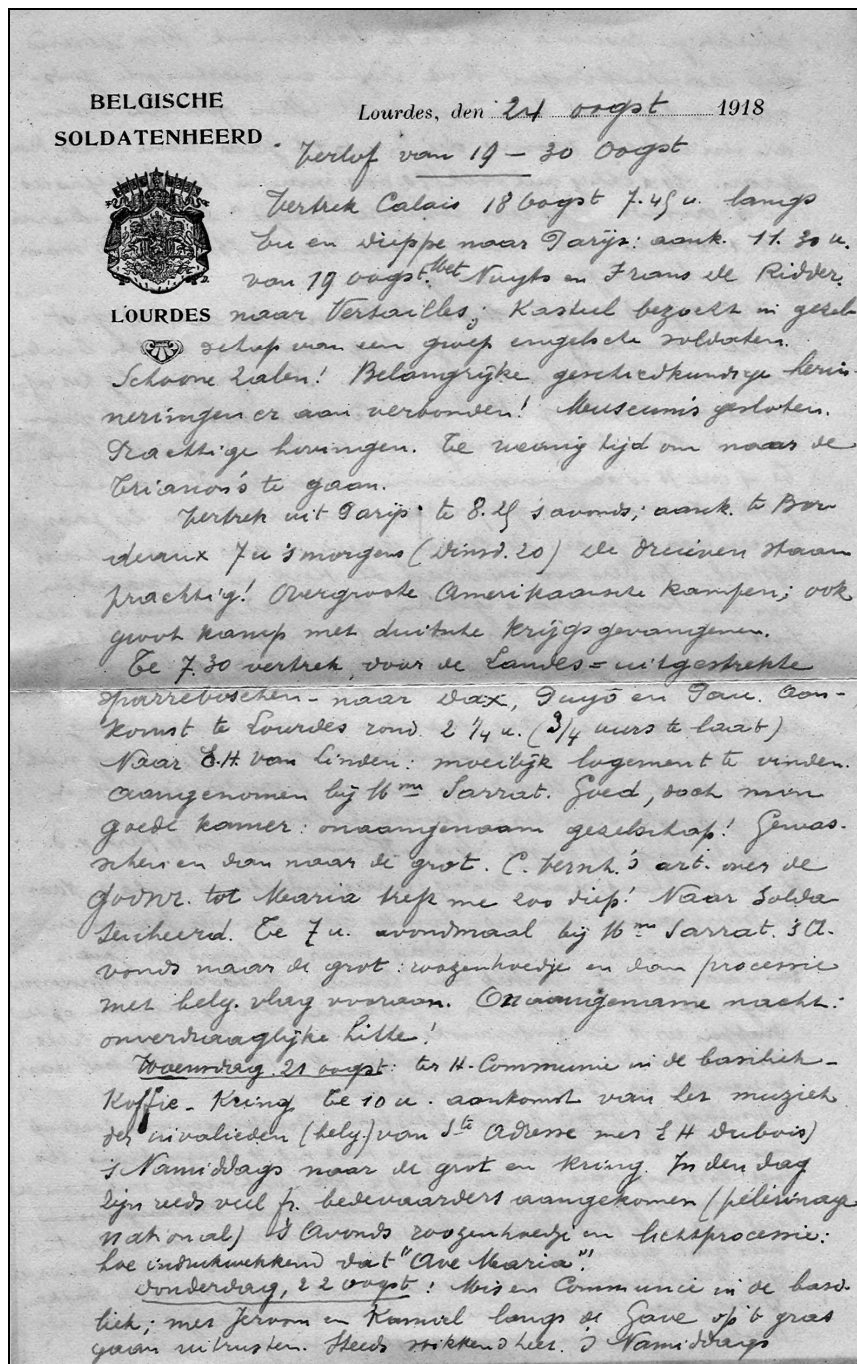 BELGISCHE
SOLDATENHEERD
LOURDES
Lourdes, den 24 oogst 1918
Verlof van 19 – 30 Oogst
Vertrek Calais 18 oogst 7.45 u. langs
Eu en Dieppe naar Parijs: aank. 11.30 u.
van 19 oogst. Met Nuyts en Frans de Ridder
naar Versailles; Kasteel bezocht in gezel-
schap van een groep engelsche soldaten.
Schoone zalen! Belangrijke geschiedkundige herin-
neringen er aan verbonden! Museum's gesloten.
Prachtige hovingen. Te weinig tijd om naar de
Trianon's te gaan.
Vertrek uit Parijs te 8.25 's avonds; aank. te Bor-
deaux 7 u 's morgens (Dinsd. 20) De druiven staan
prachtig! Overgroote Amerikaansche kampen; ook
groot kamp met duitsche krijgsgevangenen.
Te 7.30 vertrek door de Landes = uitgestrekte
sparrebosschen – naar Dax, Puyô en Pau. Aan-
komst te Lourdes rond 2 1/4 u. (3/4 uurs te laat)
Naar E.H. Van Linden: moeilijk logement te vinden.
Aangenomen bij Mme Sarrat. Goed, doch min
goede kamer: onaangenaam gezelschap! Gewas-
schen en dan naar de grot. C. Versch.'s art. over de
godsvr. tot Maria trof me zoo diep! Naar Solda-
tenheerd. Te 7 u. avondmaal bij Mme Sarrat. 's A-
vonds naar de grot: roozenhoedje en dan processie
met belg. vlag vooraan. Onaangename nacht:
onverdraaglijke hitte!
Woensdag 21 oogst: ter H. Communie in de basiliek –
Koffie – Kring Te 10 u. aankomst van het muziek
der invalieden (belg.) van Ste Adresse met E H Dubois)
's Namiddags naar de grot en kring. In den dag
zijn reeds veel fr. bedevaarders aangekomen (pélérinage
national) 's Avonds roozenhoedje en lichtprocessie:
hoe indrukwekkend dat "Ave Maria"!
Donderdag, 22 oogst: Mis en Communie in de basi-
liek; met Jeroom en Kamiel langs de Gave op 't gras
gaan uitrusten. Steeds stikkend heet. 's Namiddags